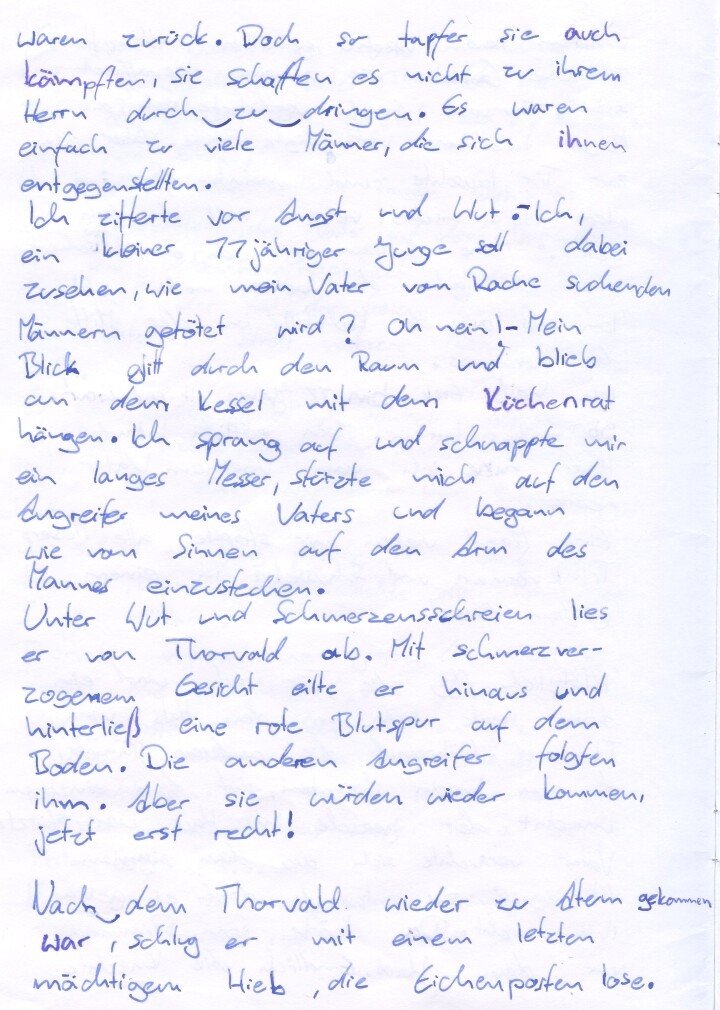 waren zurück. Doch so tapfer sie auch
kämpften, sie schaften es nicht zu ihrem
Herrn durch zu dringen. Es waren
einfach zu viele Männer, die sich ihnen
entgegenstellten.
Ich zitterte vor Angst und Wut.- Ich,
ein kleiner 11jähriger Junge soll dabei
zusehen, wie mein Vater von Rache suchenden
Männern getötet wird? Oh nein!- Mein
Blick glitt durch den Raum und blieb
an dem Kessel mit dem Küchenrat
hängen. Ich sprang auf und schnappte mir
ein langes Messer, stürzte mich auf den
Angreifer meines Vaters und begann
wie von Sinnen auf den Arm des
Mannes einzustechen.
Unter Wut und Schmerzensschreien lies
er von Thorvald ab. Mit schmerzver-
zogenem Gesicht eilte er hinaus und
hinterließ eine rote Blutspur auf dem
Boden. Die anderen Angreifer folgten
ihm. Aber sie würden wieder kommen,
jetzt erst recht!
Nach dem Thorvald wieder zu Atem gekommen
war, schlug er mit einem letzten
mächtigem Hieb, die Eichenposten lose.